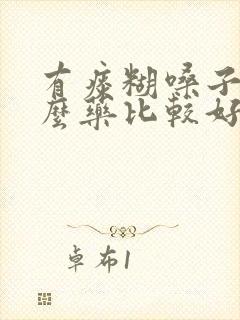 有痰糊嗓子
麼藥比較好
卓布1